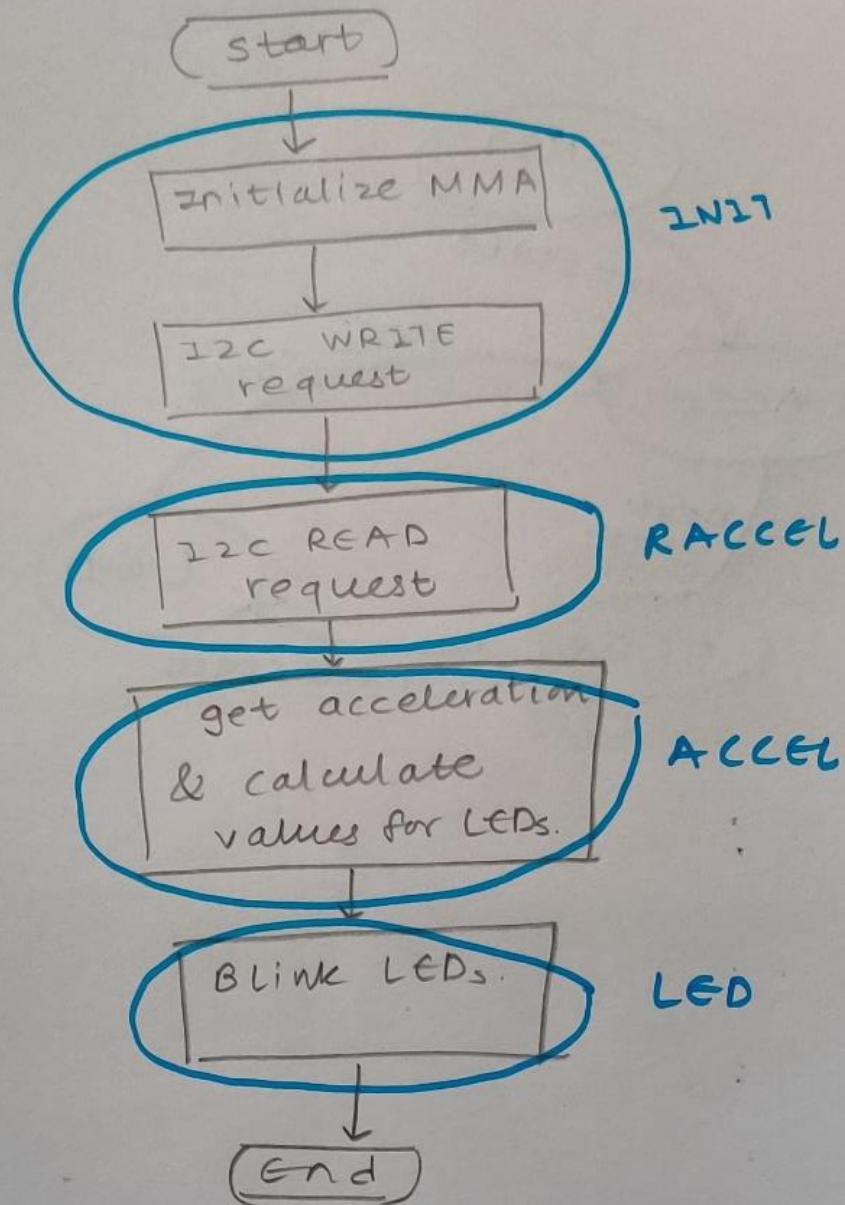 start
Initialize MMA
INIT
I2C WRITE
request
I2C READ
request
RACCEL
get acceleration
& calculate
values for LEDs.
ACCEL
Blink LEDs.
LED
End